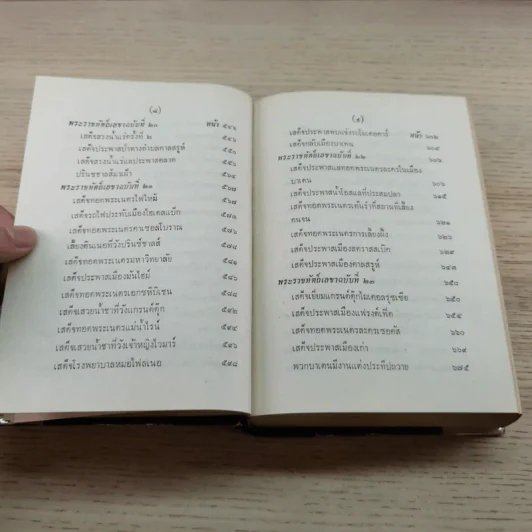 (๘)
พระราชหัตถ์เลขาฉบับที่ ๒๐ หน้า ๕๔๖
เสด็จสรงน้ำแร่ครั้งที่ ๒ ๕๔๖
เสด็จประพาสป่าทางตำบลคาลสรูห์ ๕๕๐
เสด็จสรงน้ำแร่และประพาสตลาด ๕๕๑
ปรินซชาลส์แนมัว
พระราชหัตถ์เลขาฉบับที่ ๒๑ ๕๖๗
เสด็จทอดพระเนตรไฟไหม้ ๕๗๘
เสด็จรถไฟประทับเมืองไฮเดลเบิก ๕๘๑
เสด็จทอดพระเนตรคาเซอลโบราณ ๕๘๒
เลี้ยงดินเนอที่วังปรินซ์ชาลส์
เสด็จทอดพระเนตรมหาวิทยาลัย ๕๘๔
เสด็จประพาสเมืองมันไฮม์ ๕๘๕
เสด็จทอดพระเนตรเอกซหิบิเชน ๕๘๘
เสด็จเสวยน้ำชาที่วังแกรนด์ดุ๊ก ๕๙๒
เสด็จทอดพระเนตรแม่น้ำไรน์ ๕๙๔
เสด็จเสวยน้ำชาที่วังเจ้าหญิงไวมาร์ ๕๙๖
เสด็จโรงพยาบาลหมอไฟลเนอ ๕๙๘
(๙)
หน้า ๖๐๒
เสด็จกลับเมืองบาเดน ๖๐๔
พระราชหัตถ์เลขาฉบับที่ ๒๒ ๖๐๖
บาเดน
เสด็จประพาสน้ำโอสถที่ประสมปลา ๖๑๘
เสด็จทอดพระเนตรเต้นรำที่สถานที่เลี้ยง
คนจน ๖๒๑
เสด็จทอดพระเนตรการเลี้ยงผึ้ง
เสด็จประพาสเมืองสตาวสลบิก
เสด็จประพาสเมืองคาลสรูห์ ๖๔๓
พระราชหัตถ์เลขาฉบับที่ ๒๓ ๖๕๐
เสด็จเยี่ยมแกรนด์ดุ๊กไมเคอลรุซเซีย ๖๕๐
เสด็จประพาสเมืองแฟรงค์เฟิต ๖๕๗
เสด็จทอดพระเนตรละครเซอคัส ๖๖๐
เสด็จประพาสเมืองเก่า ๖๖๙
พวกบาเดนมีงานแต่งประทีปถวาย ๖๗๕